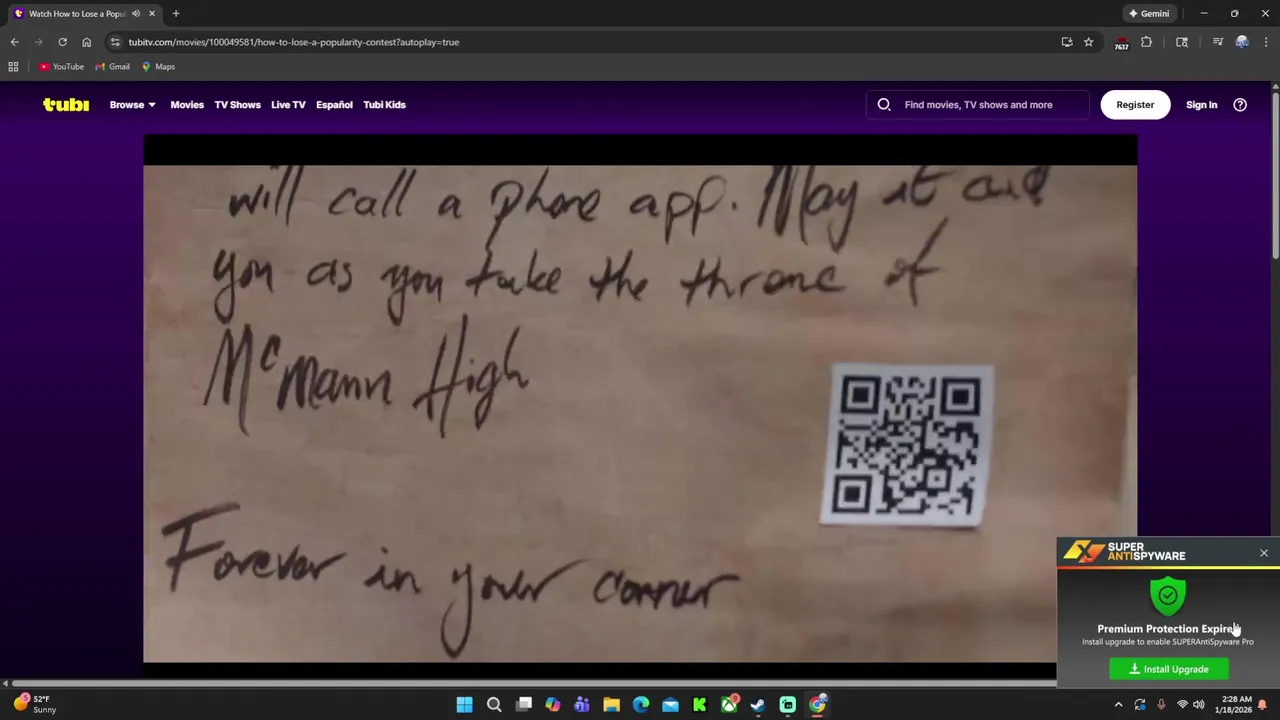 Watch How to Lose a Popul
Gemini
tubitv.com/movies/100049581/how-to-lose-a-popularity-contest?autoplay=true
7637
YouTube
Gmail
Maps
tubi
Browse
Movies
TV Shows
Live TV
Español
Tubi Kids
Find movies, TV shows and more
Register
Sign In
will call a phone app. May it aid
you as you take the throne of
McMann High
Forever in your corner
SUPER
ANTISPYWARE
Premium Protection Expire
Install upgrade to enable SUPERAntiSpyware Pro
Install Upgrade
52°F
Sunny
2:28 AM
1/18/2026